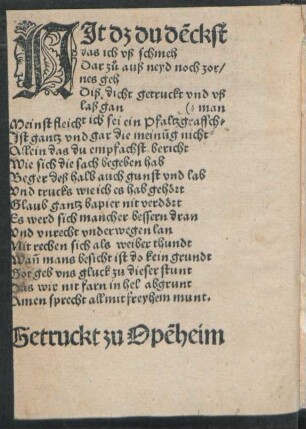 NIt dz du dēckst
das ich vß schmeh
Dar zů auß neyd noch zor⸗
nes geb
Diß dicht getruckt vnd vß
laß gan (⸗ man
Meinst fleicht ich sei ein Pfaltzgraffsch⸗
Ist gantz vnd gar die meinūg nicht
Allein das du empfachst bericht
Wie sich die sach begeben hab
Beger deß halb auch gunst vnd lab
Vnd trucks wie ich es hab gehört
Glaub gantz bapier nit verdört
Es werd sich mancher bessern dran
Vnd vnrecht vnderwegen lan
Nit rechen sich als weiber thundt
Wañ mans besicht ist do kein grundt
Got geb vns gluck zu dieser stunt
Das wir nit farn in hel abgrunt
Amen sprecht all mit freyhem munt.
Getruckt zu Opēheim